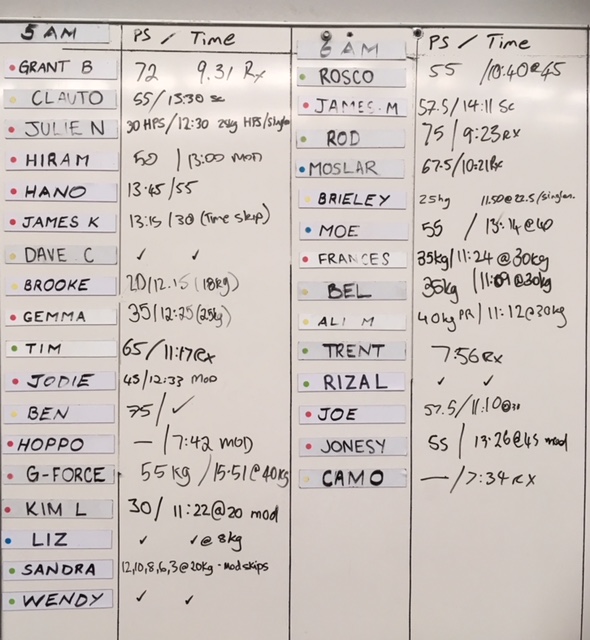 5 AM PS / Time
GRANT B 72 9.31 Rx
CLAUTO 55/15:30 sc
JULIE N 30 HPS/12:30 25kg HPS/singles
HIRAM 50 | 13:00 MOD
HANO 13:45/55
JAMES K 13:15 /30 (Time skip)
DAVE C ✓ ✓
BROOKE 20/12.15 (18kg)
GEMMA 35/12:25 (25kg)
TIM 65/11:17 Rx
JODIE 45/12:33 MOD
BEN 75/✓
HOPPO — /7:42 MOD
G-FORCE 55 kg /15:51@40kg
KIM L 30/ 11:22@20 mod
LIZ ✓ ✓@8kg
SANDRA 12,10,8,6,3@20kg - mod skips
WENDY ✓ ✓
6 AM PS / Time
ROSCO 55 /10:40@45
JAMES M 57.5/14:11 Sc
ROD 75 | 9:23 RX
MOSLAR 67.5/10:21 Rx
BRIELEY 25kg 11.50@22.5/singles.
MOE 55 / 13:14@40
FRANCES 35kg/11:24 @30kg
BEL 35kg /11:09 @30kg
ALI M 40kg PR / 11:12@30kg
TRENT 7:56 Rx
RIZAL ✓ ✓
JOE 57.5/11:10@
JONESY 55 | 13:26@45 mod
CAMO — /7:34 RX